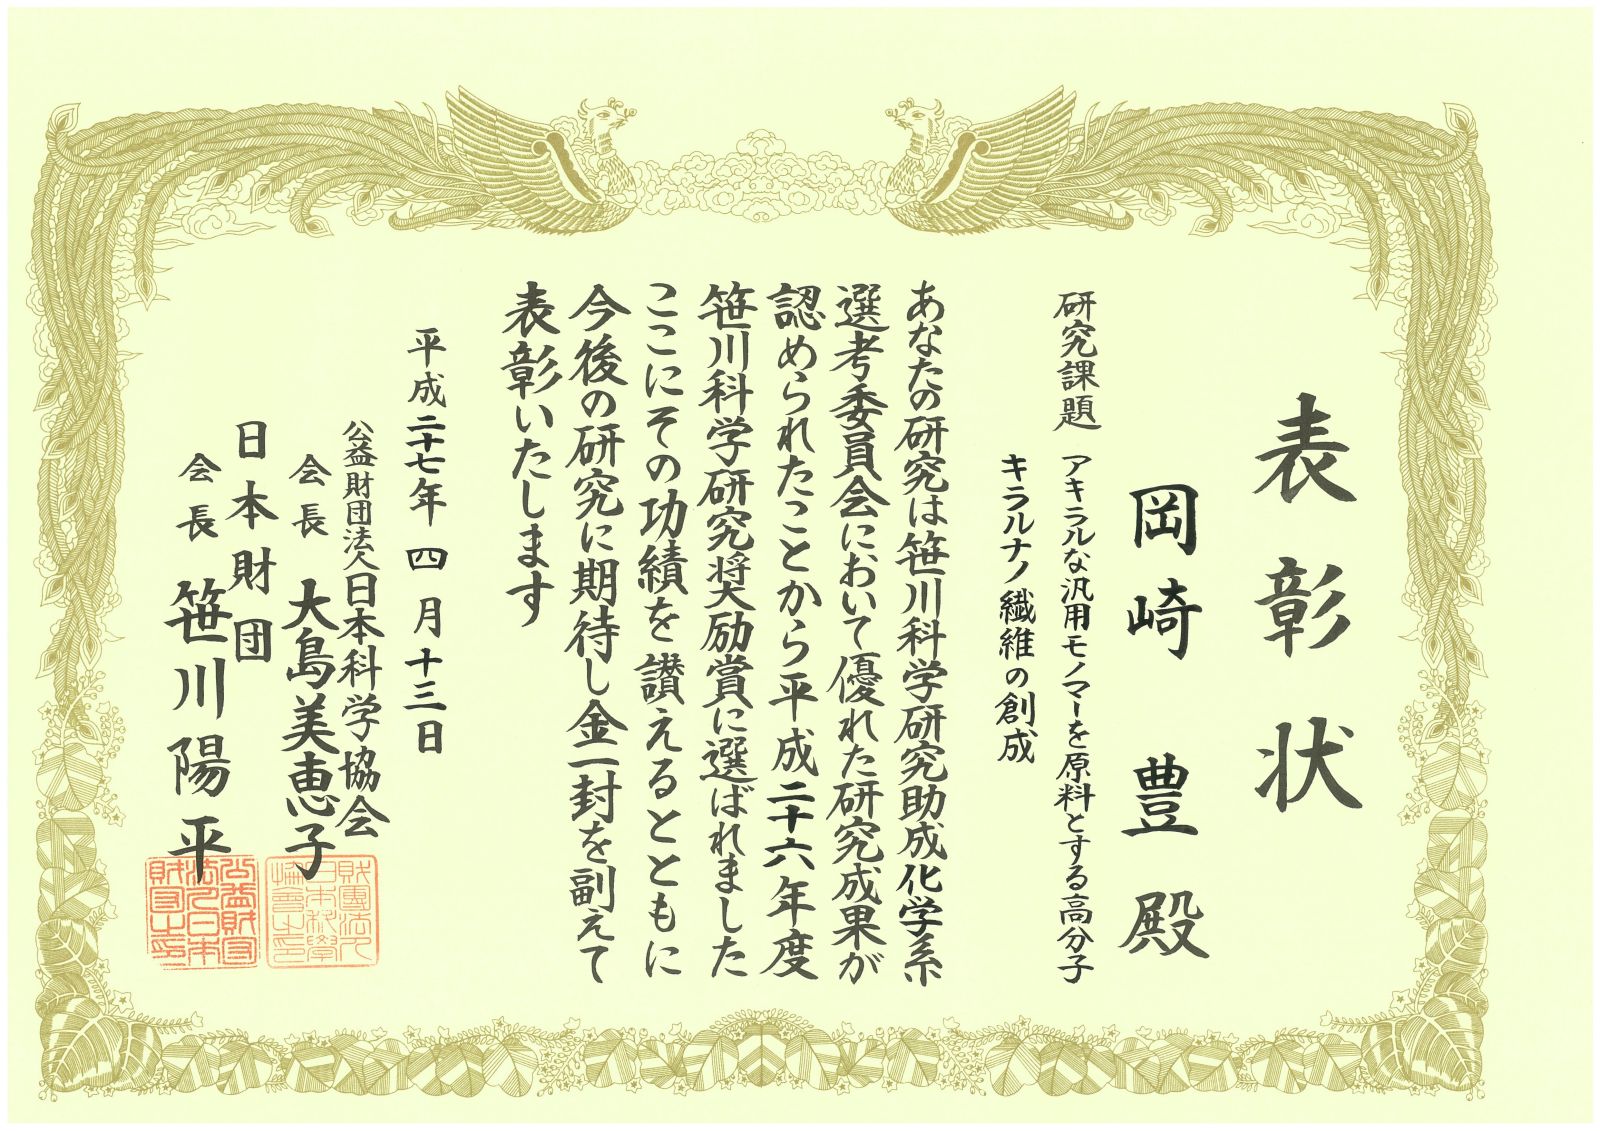 表彰状
岡崎 豊 殿
研究課題 アキラルな汎用モノマーを原料とする高分子
キラルナノ繊維の創成
あなたの研究は笹川科学研究助成化学系
選考委員会において優れた研究成果が
認められたことから平成二十六年度
笹川科学研究奨励賞に選ばれました
ここにその功績を讃えるとともに
今後の研究に期待し金一封を副えて
表彰いたします
平成二十七年四月十三日
公益財団法人日本科学協会
会長 大島美恵子
日本財団
会長 笹川陽平